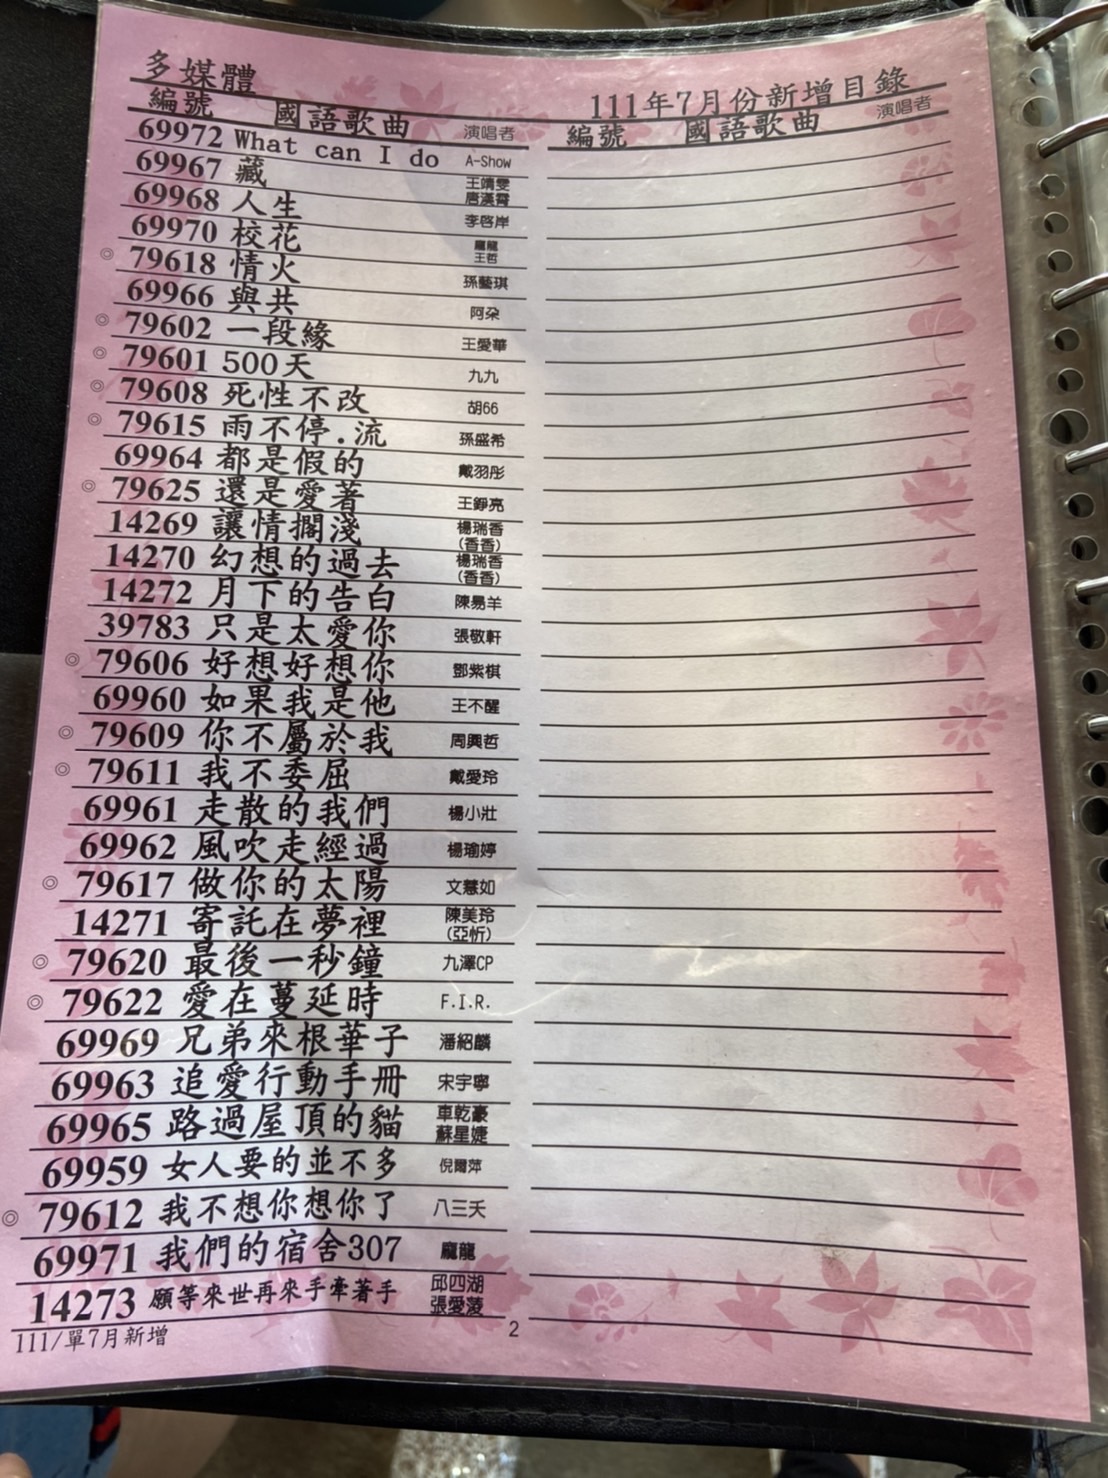 多媒體
111年7月份新增目錄
編號 國語歌曲 演唱者 編號 國語歌曲 演唱者
69972 What can I do A-Show
69967 藏 王靖雯 唐漢霄
69968 人生 李啓岸
69970 校花 龐龍 王哲
◎ 79618 情火 孫藝琪
69966 與共 阿朶
◎ 79602 一段緣 王愛華
◎ 79601 500天 九九
◎ 79608 死性不改 胡66
◎ 79615 雨不停.流 孫盛希
69964 都是假的 戴羽彤
◎ 79625 還是愛著 王錚亮
14269 讓情擱淺 楊瑞香(香香)
14270 幻想的過去 楊瑞香(香香)
14272 月下的告白 陳易羊
39783 只是太愛你 張敬軒
◎ 79606 好想好想你 鄧紫棋
69960 如果我是他 王不醒
◎ 79609 你不屬於我 周興哲
◎ 79611 我不委屈 戴愛玲
69961 走散的我們 楊小壯
69962 風吹走經過 楊瑜婷
◎ 79617 做你的太陽 文慧如
14271 寄託在夢裡 陳美玲(亞忻)
◎ 79620 最後一秒鐘 九澤CP
◎ 79622 愛在蔓延時 F.I.R.
69969 兄弟來根華子 潘紹麟
69963 追愛行動手冊 宋宇寧
69965 路過屋頂的貓 車乾豪 蘇星婕
69959 女人要的並不多 倪爾萍
◎ 79612 我不想你想你了 八三夭
69971 我們的宿舍307 龐龍
14273 願等來世再來手牽著手 邱四湖 張愛薐
111/單7月新增
2